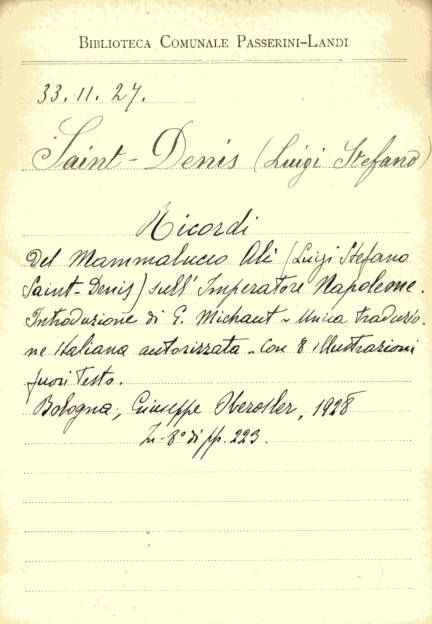 BIBLIOTECA COMUNALE PASSERINI-LANDI
33.11.27.
Saint-Denis (Luigi Stefano)
Ricordi
Del Mammalucco Alì (Luigi Stefano
Saint-Denis) sull'Imperatore Napoleone.
Introduzione di G. Michaut - Unica traduzio-
ne italiana autorizzata - Con 8 illustrazioni
fuori Testo.
Bologna, Giuseppe Oberosler, 1928
In-8° di pp. 223.